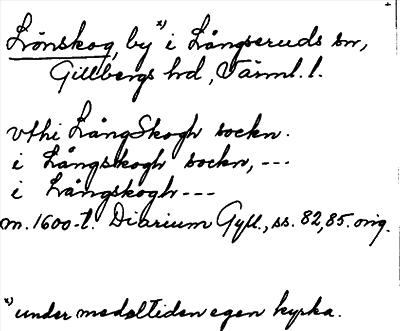 Lönskog, by x) i Långseruds sn,
Gillbergs hd, Värml. l.
vthi LångSkogh sockn.
i Långskogh sockn, ---
i Långskogh ---
m. 1600-t. Diarium Gyll., ss. 82, 85. orig.
x) under medeltiden egen kyrka.